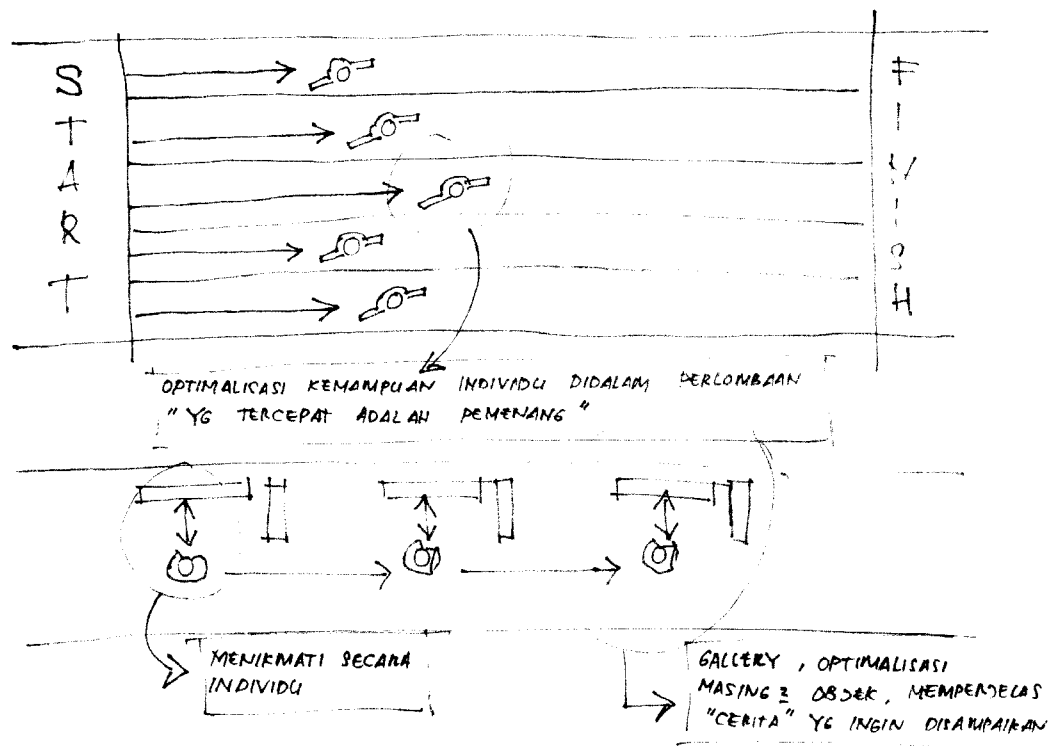 START
FINISH
OPTIMALISASI KEMAMPUAN INDIVIDU DIDALAM PERLOMBAAN
"YG TERCEPAT ADALAH PEMENANG"
MENIKMATI SECARA
INDIVIDU
GALLERY, OPTIMALISASI
MASING2 OBJEK, MEMPERJELAS
"CERITA" YG INGIN DISAMPAIKAN